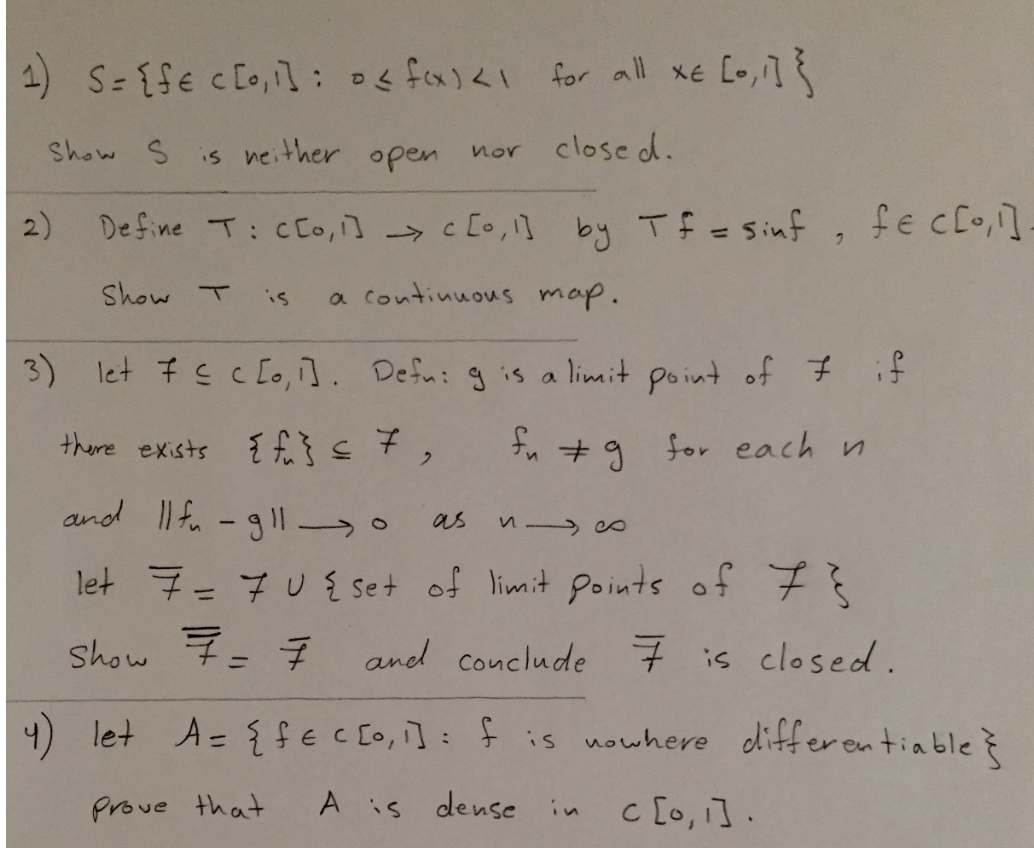 1) S = {f ∈ C[0,1] : 0 ≤ f(x) < 1 for all x ∈ [0,1]}
Show S is neither open nor closed.
2) Define T : C[0,1] → C[0,1] by Tf = sinf , f ∈ C[0,1].
Show T is a continuous map.
3) let F ⊆ C[0,1]. Defn: g is a limit point of F if
there exists {fₙ} ⊆ F , fₙ ≠ g for each n
and ||fₙ - g|| → 0 as n → ∞
let F̅ = F ∪ {set of limit points of F}
Show F̿ = F̅ and conclude F̅ is closed.
4) let A = {f ∈ C[0,1] : f is nowhere differentiable}
prove that A is dense in C[0,1].